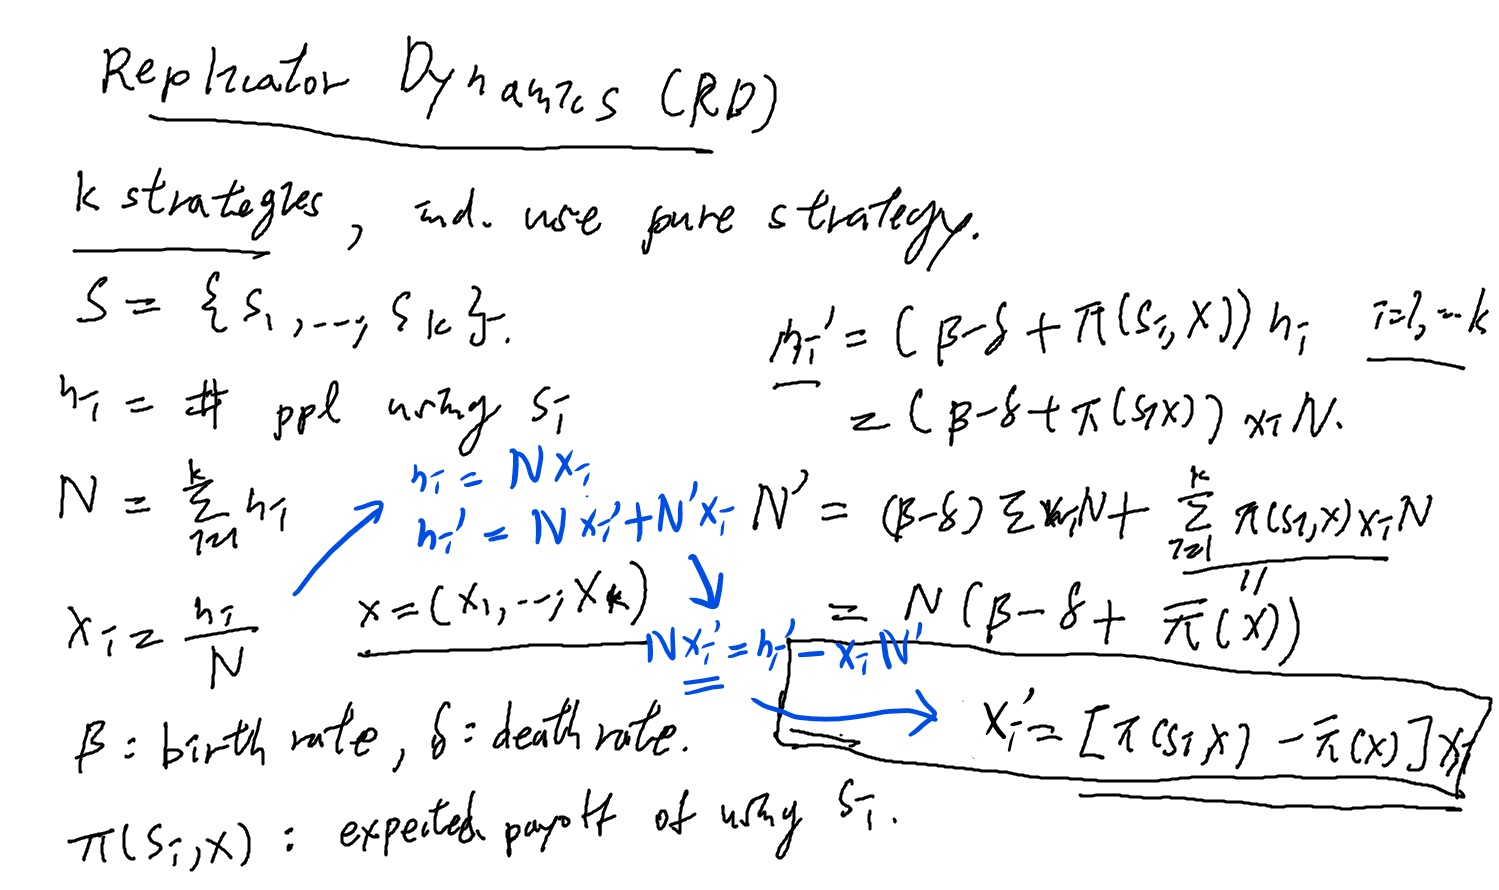 Replicator Dynamics (RD)
k strategies, ind. use pure strategy.
S = {s₁, ..., sₖ}.
nᵢ = # ppl using sᵢ
N = Σᵢ₌₁ᵏ nᵢ
xᵢ = nᵢ/N
x = (x₁, ..., xₖ)
β : birth rate, δ : death rate.
π(sᵢ, x) : expected payoff of using sᵢ.
nᵢ = N xᵢ
nᵢ' = N xᵢ' + N' xᵢ
N xᵢ' = nᵢ' − xᵢ N'
nᵢ' = (β−δ + π(sᵢ, x)) nᵢ i=1, ... k
= (β−δ + π(sᵢ, x)) xᵢ N.
N' = (β−δ) Σ xᵢ N + Σᵢ₌₁ᵏ π(sᵢ, x) xᵢ N
= N (β−δ + π̄(x))
xᵢ' = [π(sᵢ, x) − π̄(x)] xᵢ